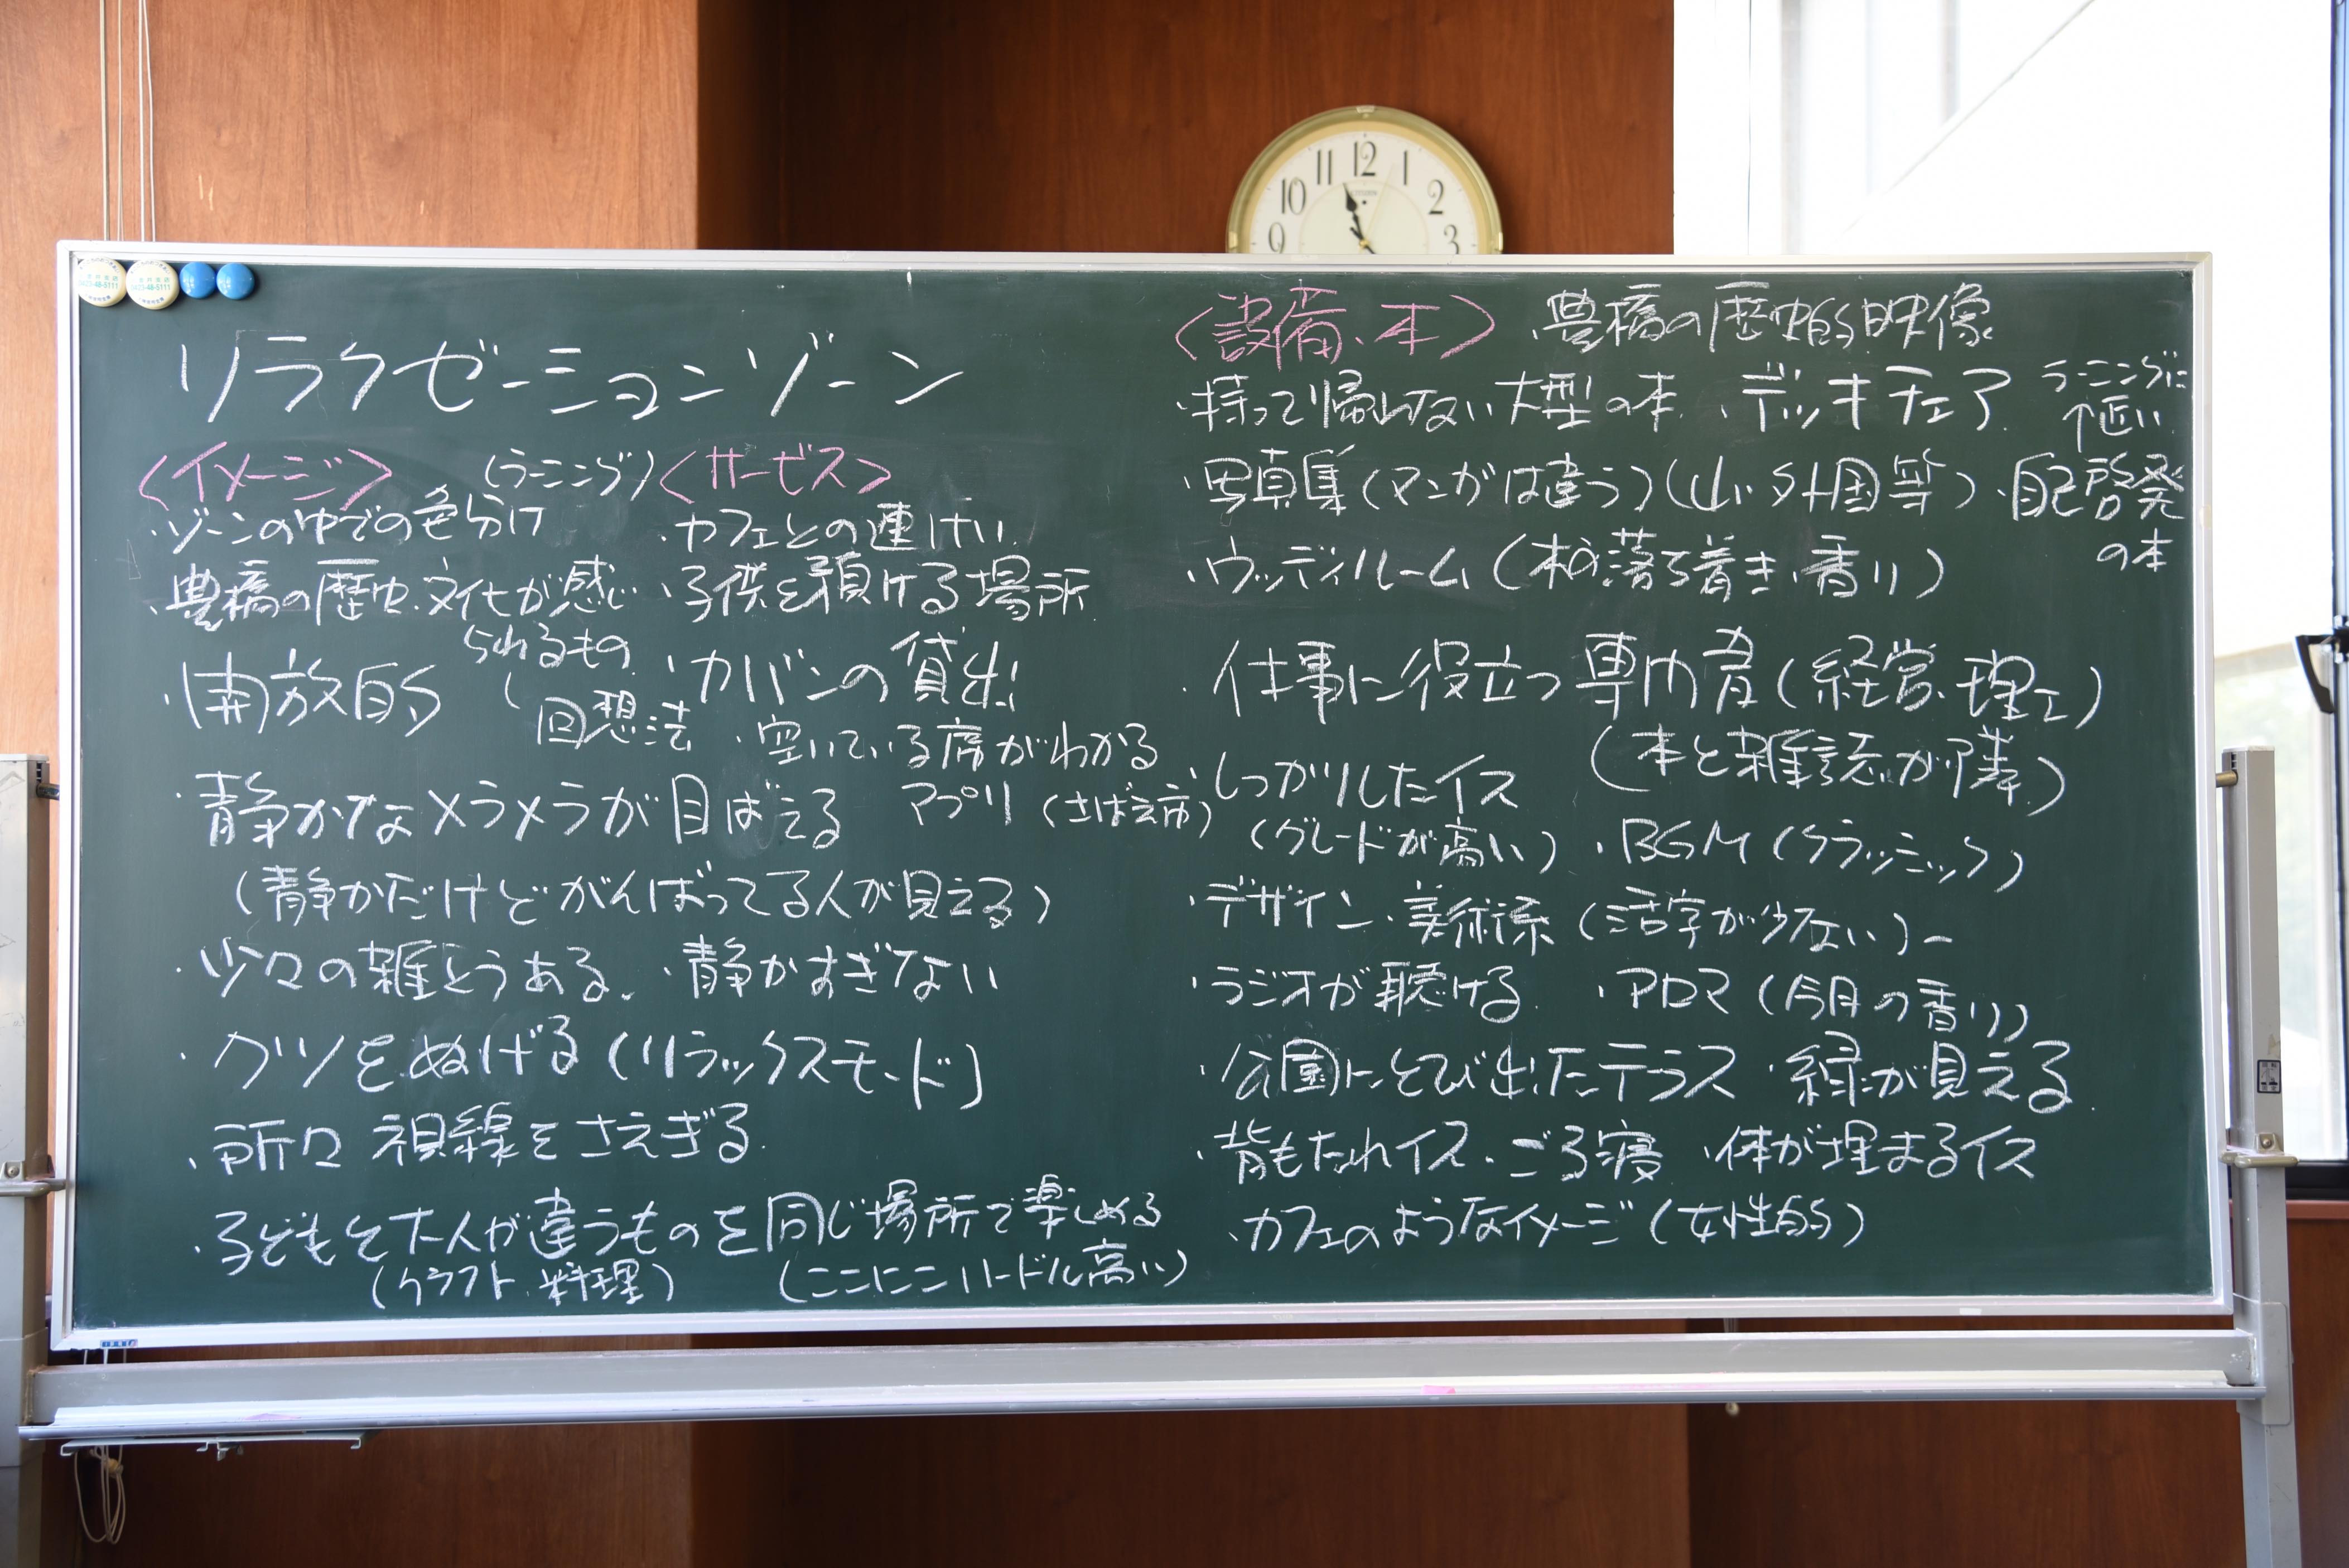 リラクゼーションゾーン
〈イメージ〉
・ゾーンの中での色分け
(ラーニング)
・豊橋の歴史・文化が感じ
られるもの
(回想法
・開放的
・静かなメラメラが目ばえる
(静かだけどがんばってる人が見える)
・少々の雑とうある。・静かすぎない
・クツをぬげる(リラックスモード)
・所々 視線をさえぎる
・子どもと大人が違うものを同じ場所で楽しめる
(クラフト、料理) (ここにこハードル高い)
〈サービス〉
・カフェとの連けい
・子供を預ける場所
・カバンの貸出し
・空いている席がわかる
アプリ (さばえ市)
〈設備、本〉 ・豊橋の歴史的映像
・持って帰れない大型の本 ・デッキチェア
ラーニングに
↑近い
・写真集(マンガは違う)(山、外国等) ・自己啓発
の本
・ウッディルーム(木の落ち着き、香り)
・仕事に役立つ専門書(経営、理工)
(本と雑誌が隣)
しっかりしたイス
(グレードが高い) ・BGM (クラッシック)
・デザイン・美術系(活字が少ない)
・ラジオが聴ける ・アロマ(今月の香り)
・公園にとび出したテラス ・緑が見える
・背もたれイス ・ごろ寝 ・体が埋まるイス
・カフェのようなイメージ(女性的)
12
11
1
10
2
9
3